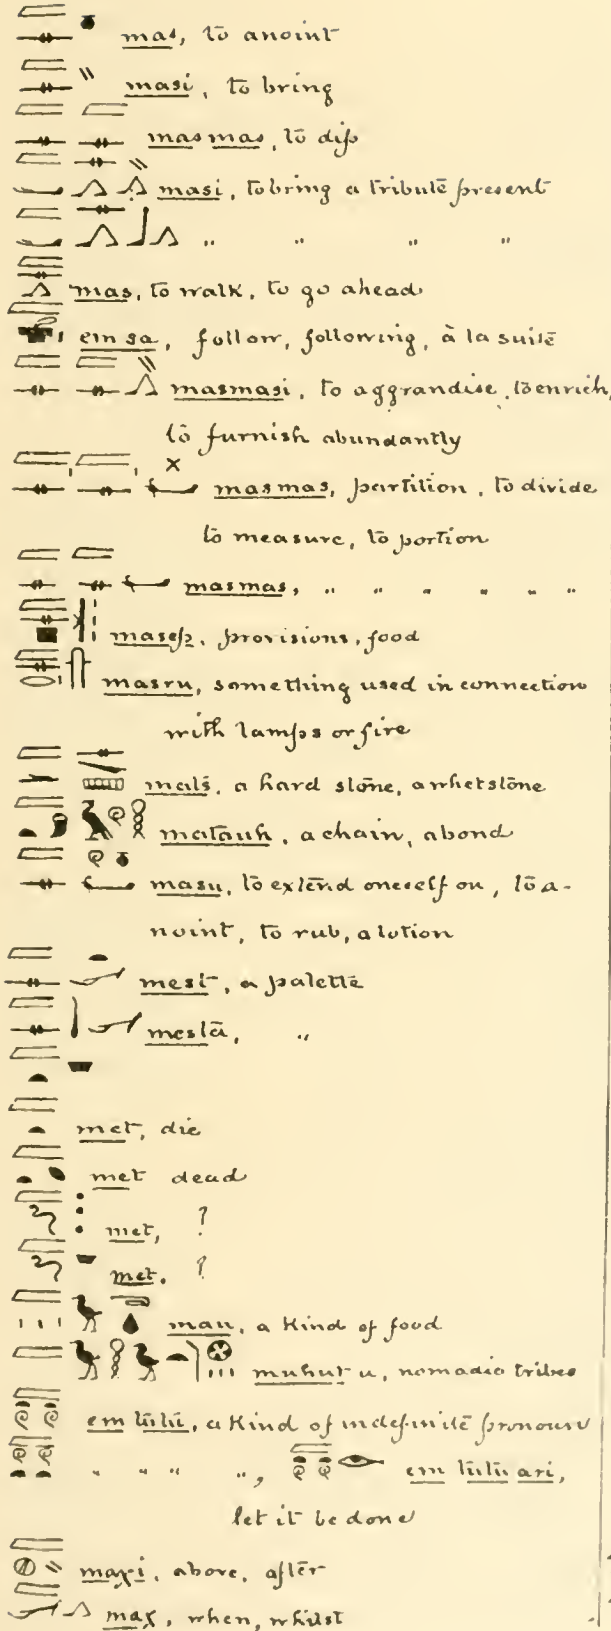 mas, to anoint
masi, to bring
masmas, to dip
masi, to bring a tribute present
" " " "
mas, to walk, to go ahead
em sa, follow, following, à la suite
masmasi, to aggrandise, to enrich,
to furnish abundantly
masmas, partition, to divide
to measure, to portion
masmas, " " " " " "
masep, provisions, food
masru, something used in connection
with lamps or fire
mats, a hard stone, a whetstone
matauh, a chain, a bond
masu, to extend oneself on, to a-
noint, to rub, a lotion
mest, a palette
mestā, "
met, die
met dead
met, ?
met. ?
mau, a kind of food
muhut u, nomadic tribes
em tutu, a kind of indefinite pronoun
" " " ", em tutu ari,
let it be done
maχi, above, after
maχ, when, whilst